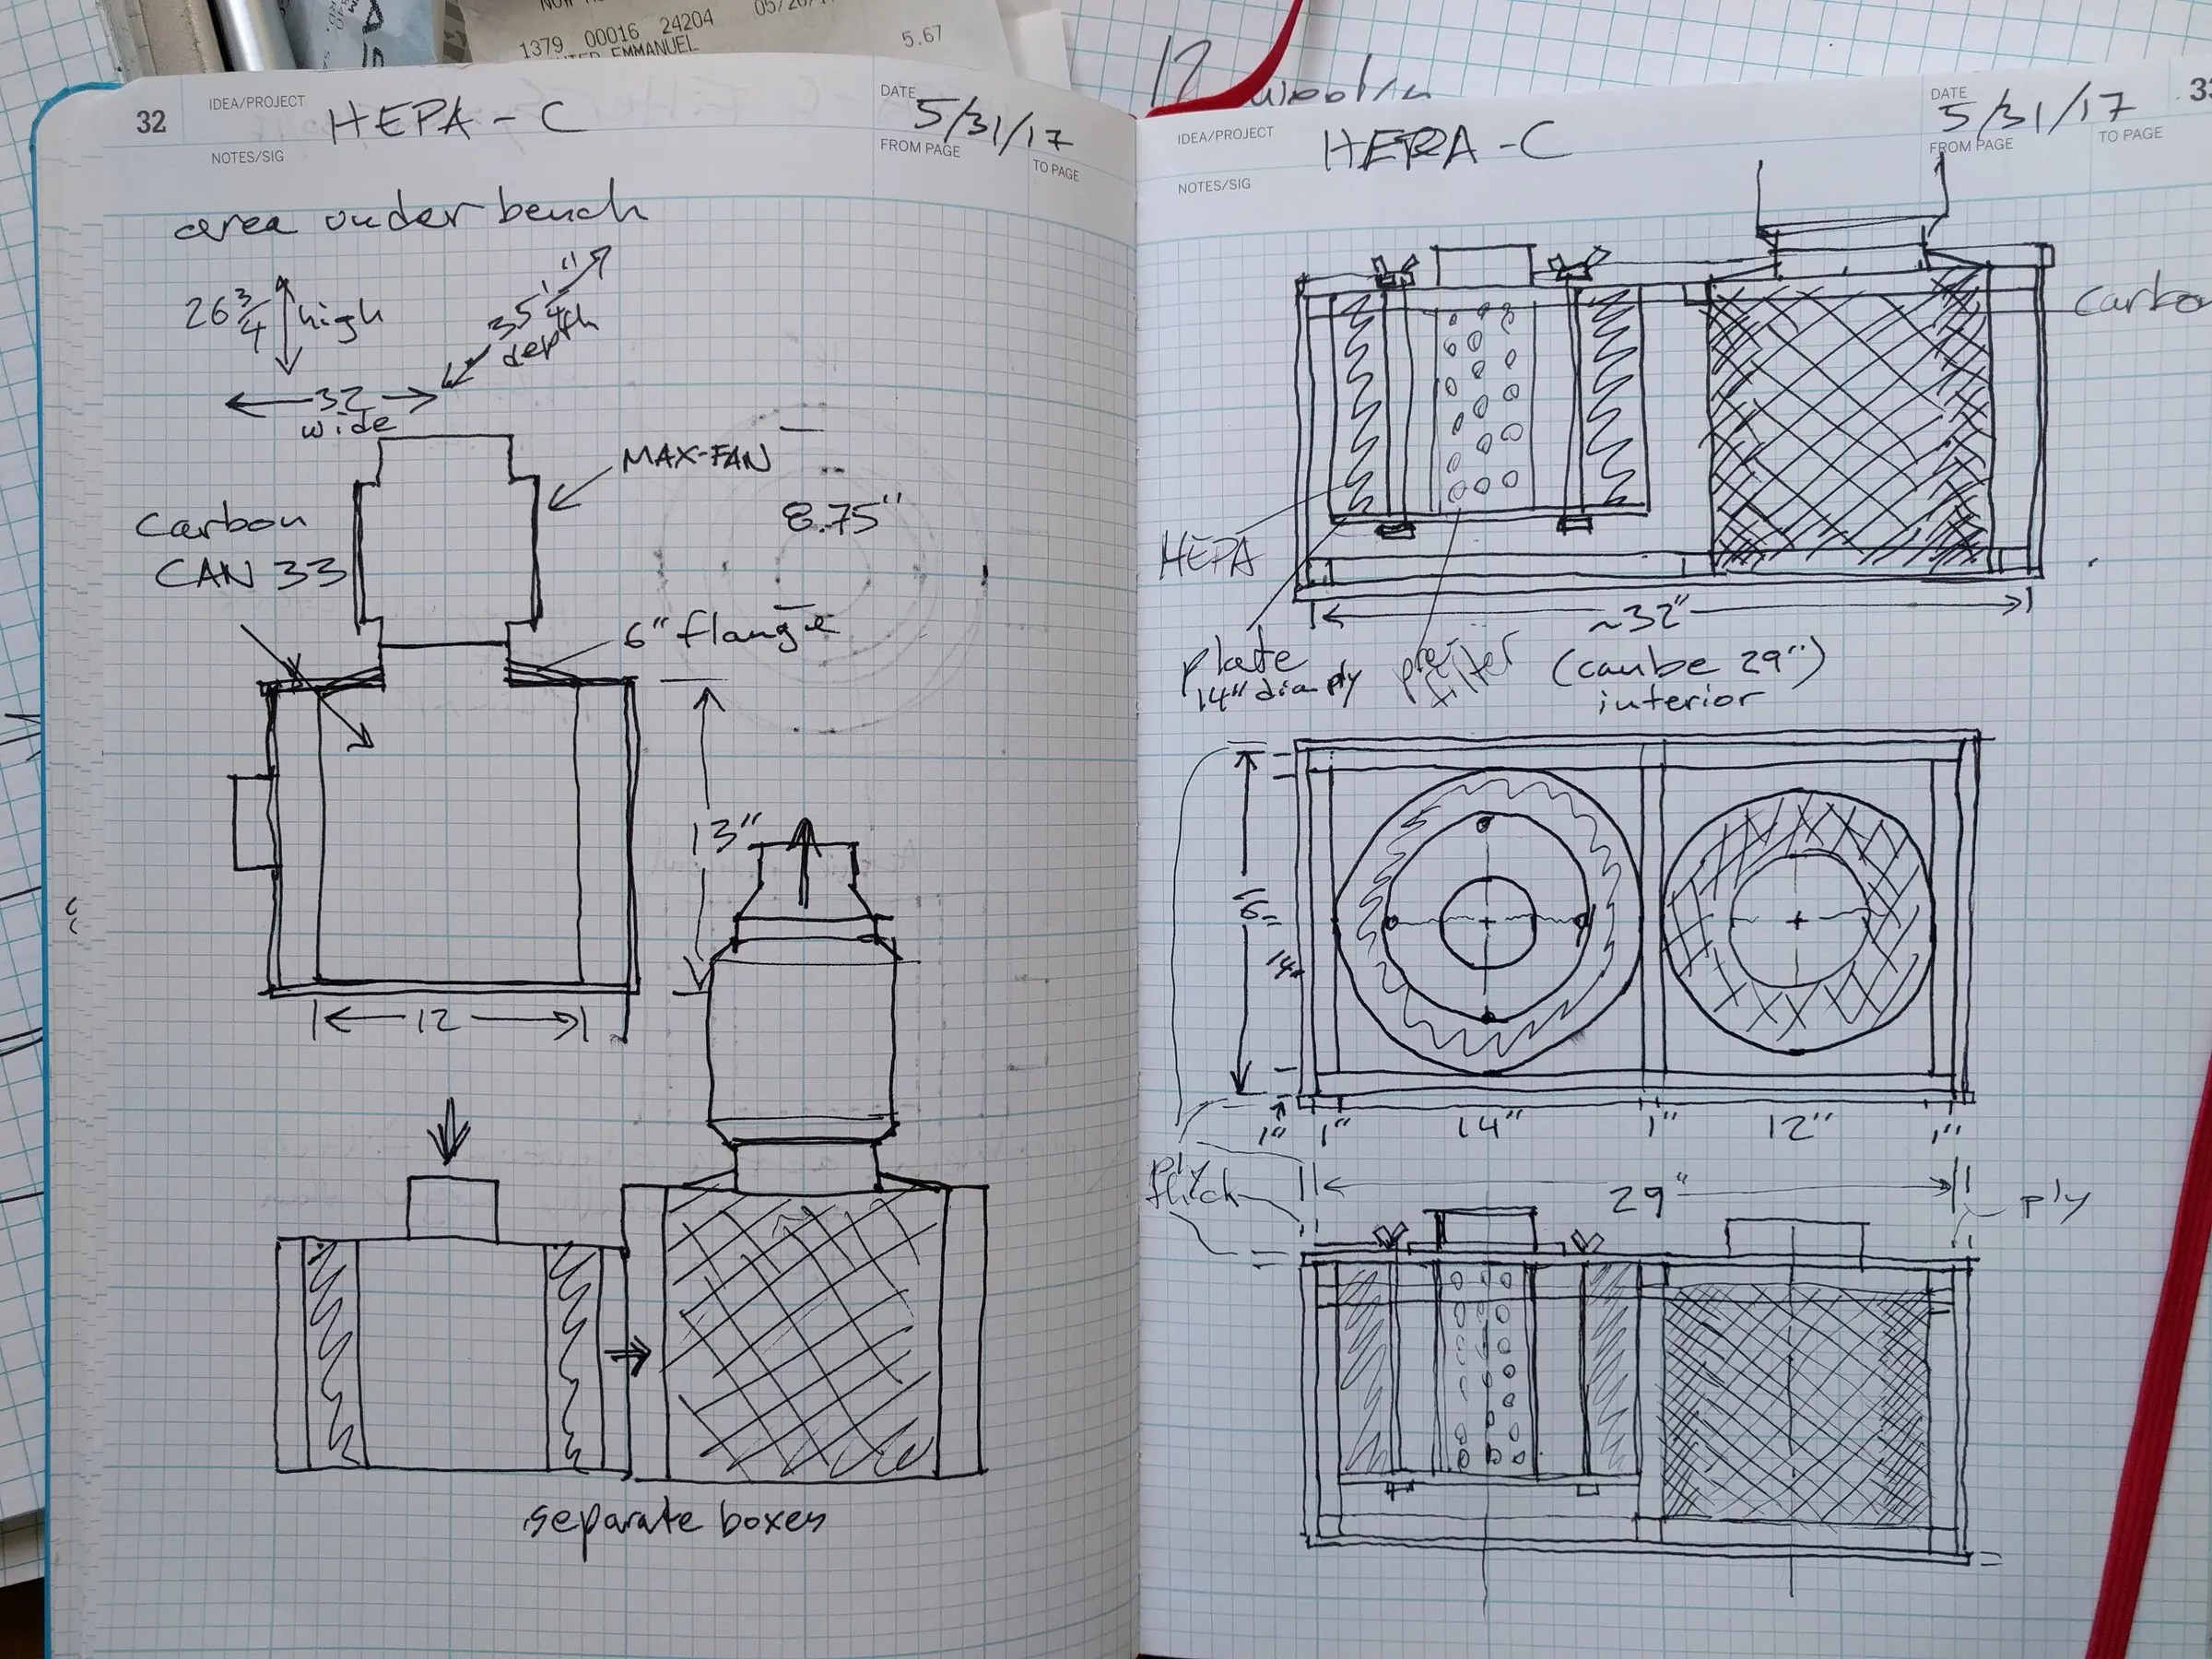 1379 00016 24204
EMMANUEL
5.67
32
IDEA/PROJECT
HEPA-C
DATE
5/31/17
NOTES/SIG
FROM PAGE
TO PAGE
area under bench
26 3/4 high
35 1/4"
depth
32
wide
MAX-FAN
Carbon
CAN 33
8.75"
6" flange
13"
12
separate boxes
IDEA/PROJECT
HEPA-C
DATE
5/31/17
NOTES/SIG
FROM PAGE
TO PAGE
HEPA
~32"
plate
14" dia ply
pre
filter
(can be 29")
interior
1" 1" 14" 1" 12" 1"
ply
thick
29"
ply